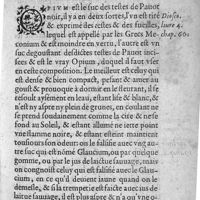 OPIVM est le suc des testes de Pauot
noir, il y a en deux sortes, l'vn est tiré Diosco.
& exprimé des testes & des fueilles, liure 4.
lequel est appellé par les Grecs Me- chap. 60.
conium & est moindre en vertu, l'autre est vn
suc degouttant desdictes testes de Pauot inci-
sees & est le vray Opium, duquel il faut vser
en ceste composition. Le meilleur est celuy qui
est dense & bien compact, pesant, amer au goust,
induisant à dormir en le fleurant, il se
resoult aysement en leau, estant lény & blanc, &
n'est aspre ny grumeleux, & ne se fond comme
cire au Soleil, & estant allumé ne iette point
vne flamme noire, & estant esteint maintient
tousiours son odeur: on le falsifie auec vn
autre suc qui est nommé Glaucium, ou par quelque
gomme, ou par le ius de laictue sauuage, mais
on congnoit celuy qui est falsifié auec le Glau-
cium, en ce qu'il deuient iaune quand on le
demesle, & si la tromperie est faicte auec ius de
laictue sauuage, il est plus aspre & n'a qu'vne